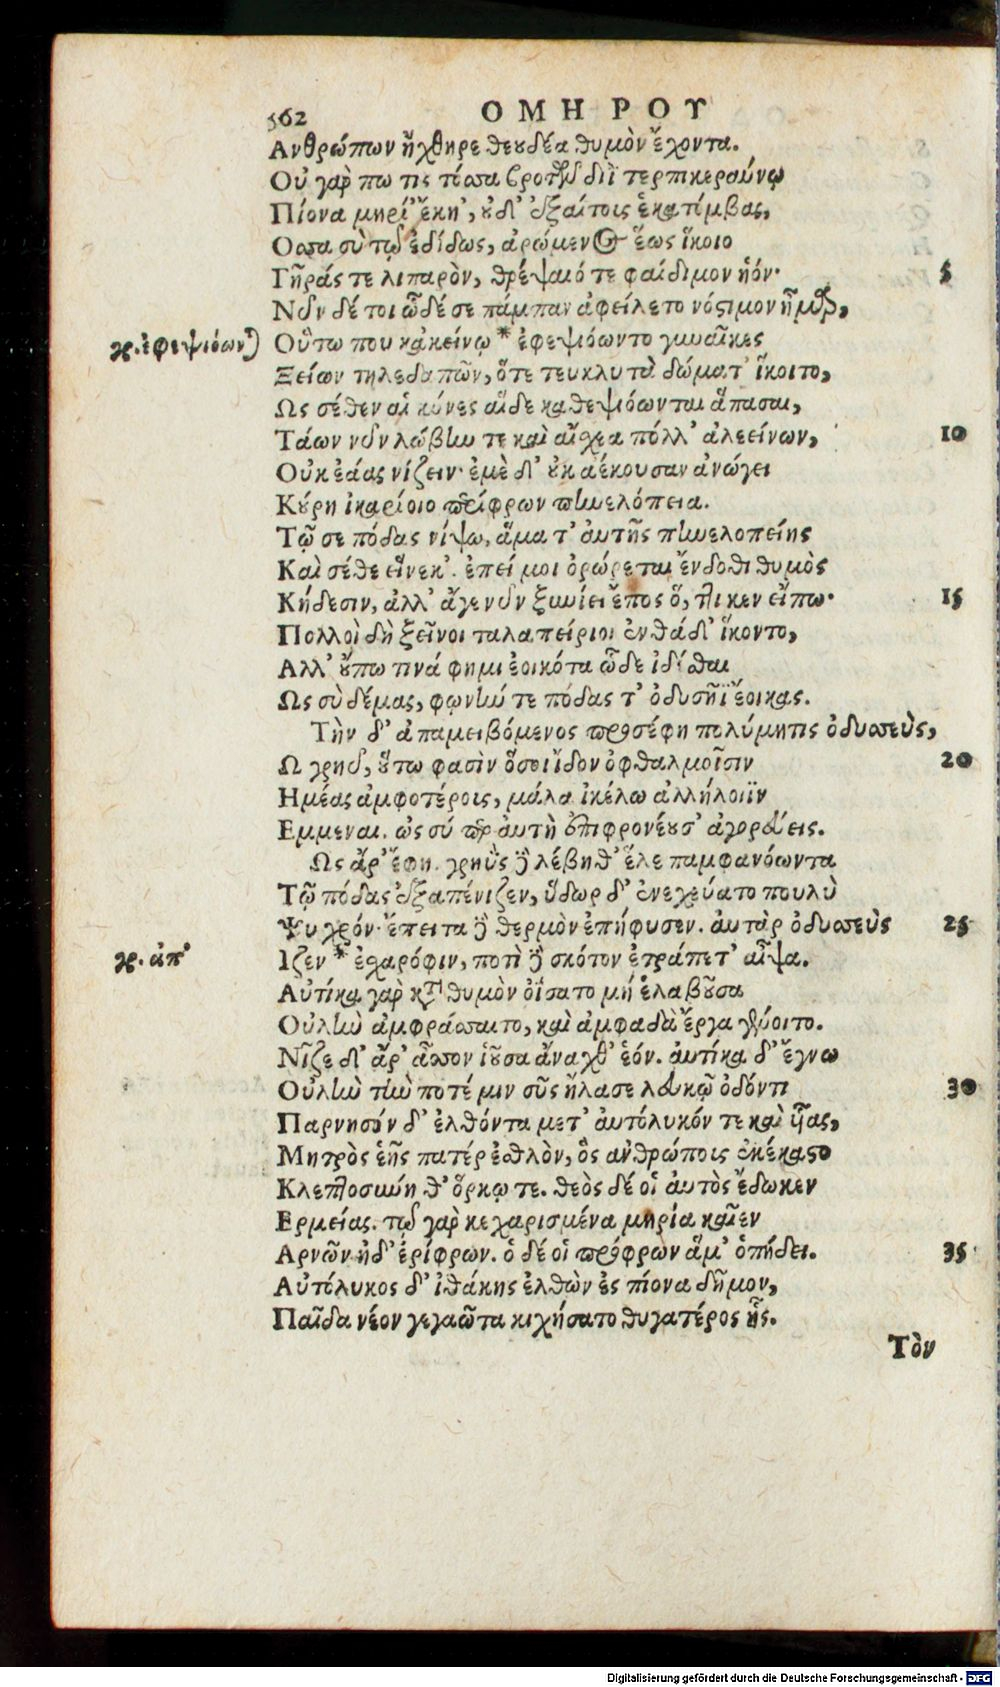 562 ΟΜΗΡΟΥ
Ανθρώπων ἤχθηρε θεουδέα θυμὸν ἔχοντα.
Οὐ γάρ πω τις τόσσα βροτῶν διῒ τερπικεραύνῳ
Πίονα μηρί' ἔκη', οὐδ' ἐξαίτοις ἑκατόμβας,
Οσσα σὺ τῷ ἐδίδως, ἀρώμενος ἕως ἵκοιο
Γῆράς τε λιπαρὸν, θρέψαιό τε φαίδιμον ἡόν· 5
Νῦν δέ τοι ὧδέ σε πάμπαν ἀφείλετο νόστιμον ἦμαρ,
γρ. ἐφεψιόων) Οὕτω που κᾀκείνῳ * ἐφεψιόωντο γυναῖκες
Ξείων τηλεδαπῶν, ὅτε τευ κλυτὰ δώματ' ἵκοιτο,
Ως σέθεν αἱ κύνες αἵδε καθεψιόωνται ἅπασαι,
Τάων νῦν λώβην τε καὶ αἴσχεα πόλλ' ἀλεείνων, 10
Οὐκ ἐάας νίζειν· ἐμὲ δ' οὐκ ἀέκουσαν ἀνώγει
Κούρη ἰκαρίοιο περίφρων πηνελόπεια.
Τῷ σε πόδας νίψω, ἅμα τ' ἀυτῆς πηνελοπείης
Καὶ σέθε εἵνεκ'. ἐπεί μοι ὀρώρεται ἔνδοθι θυμὸς
Κήδεσιν, ἀλλ' ἄγε νῦν ξυνίει ἔπος ὅ, ττι κεν εἴπω· 15
Πολλοὶ δὴ ξεῖνοι ταλαπείριοι ἐνθάδ' ἵκοντο,
Αλλ' οὔπω τινά φημι ἐοικότα ὧδε ἰδέσθαι
Ως σὺ δέμας, φωνήν τε πόδας τ' ὀδυσῆϊ ἔοικας.
Τὴν δ' ἀπαμειβόμενος προσέφη πολύμητις ὀδυσσεὺς,
Ω γρηῦ, οὕτω φασὶν ὅσοι ἴδον ὀφθαλμοῖσιν 20
Ημέας ἀμφοτέροις, μάλα ἰκέλω ἀλλήλοιϊν
Εμμεναι. ὡς σύ περ ἀυτὴ ἐπιφρονέουσ' ἀγορεύεις.
Ως ἄρ' ἔφη. γρηῢς δὲ λέβηθ' ἕλε παμφανόωντα
Τῷ πόδας ἐξαπένιζεν, ὕδωρ δ' ἐνεχεύατο πουλὺ
Ψυχρόν· ἔπειτα δὲ θερμὸν ἐπήφυσεν. ἀυτὰρ ὀδυσσεὺς 25
γρ. ἀπ' Ιζεν * ἐσχαρόφιν, ποτὶ δὲ σκότον ἐτράπετ' αἶψα.
Αὐτίκα γὰρ κατὰ θυμὸν ὀΐσατο μή ἑ λαβοῦσα
Οὐλὴν ἀμφράσσαιτο, καὶ ἀμφαδὰ ἔργα γένοιτο.
Νῖζε δ' ἄρ' ἆσσον ἰοῦσα ἄναχθ' ἑόν. ἀυτίκα δ' ἔγνω
Οὐλὴν τὴν ποτέ μιν σῦς ἤλασε λευκῷ ὀδόντι 30
Παρνησὸν δ' ἐλθόντα μετ' ἀυτόλυκόν τε καὶ υἷας,
Μητρὸς ἑῆς πατέρ ἐσθλὸν, ὃς ανθρώποις ἐκέκαστο
Κλεπτοσύνῃ θ' ὅρκῳ τε. θεὸς δέ οἱ ἀυτὸς ἔδωκεν
Ερμείας. τῷ γὰρ κεχαρισμένα μηρία καῖεν
Αρνῶν ἠδ' ἐρίφρων. ὁ δέ οἱ πρόφρων ἅμ' ὀπήδει. 35
Αὐτόλυκος δ' ἰθάκης ἐλθὼν ἐς πίονα δῆμον,
Παῖδα νέον γεγαῶτα κιχήσατο θυγατέρος ἧς.
Τὸν
Digitalisierung gefördert durch die Deutsche Forschungsgemeinschaft - DFG